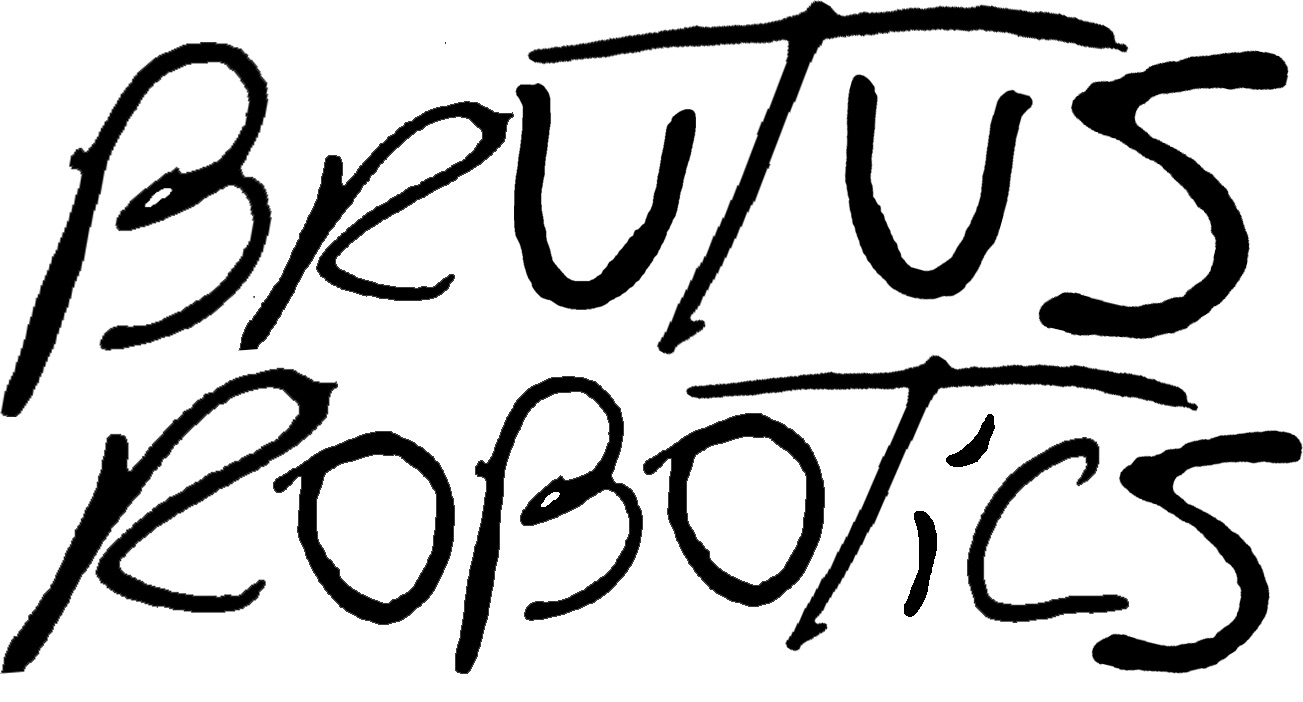 BRUTUS
ROBOTiCS